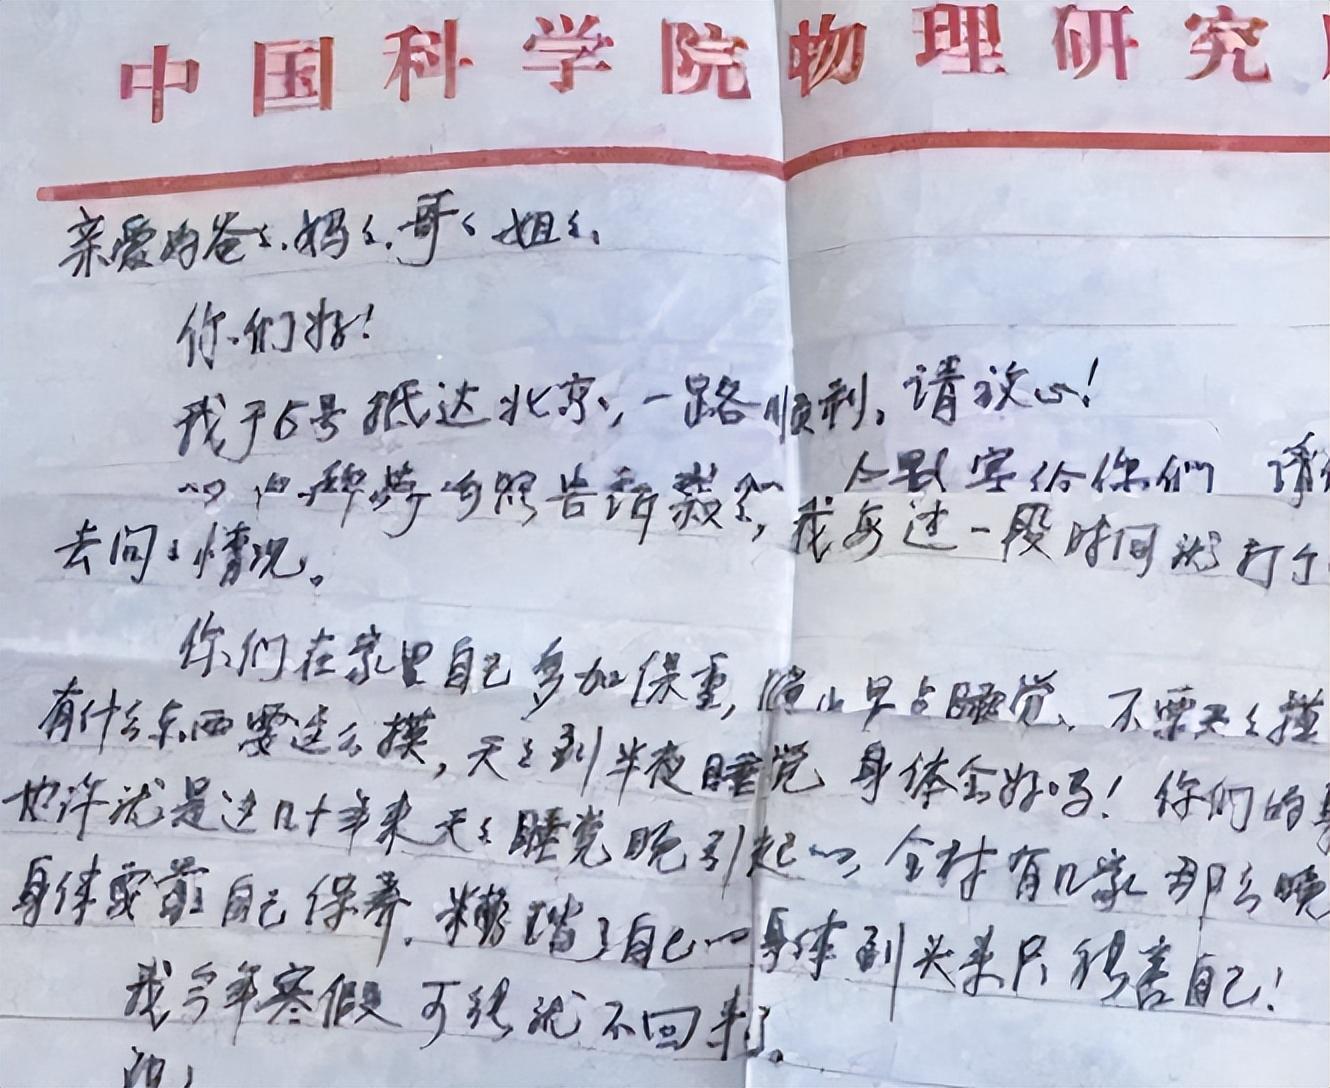 中国科学院物理研究
亲爱的爸爸、妈妈、哥哥 姐姐、
你们好！
我于6号抵达北京，一路顺利，请放心！
告诉叔叔，会写给你们 请
去问问情况。我每过一段时间就打个
你们在家里自己多加保重，早点睡觉、不要天天摸
有什么东西要这么摸，天天到半夜睡觉 身体会好吗！你们的
也许就是这几十年来天天睡觉晚引起的，全村有几家那么晚
身体要靠自己保养，糟蹋了自己的身体到头来只能害自己！
我今年寒假可能就不回来了。
祝：